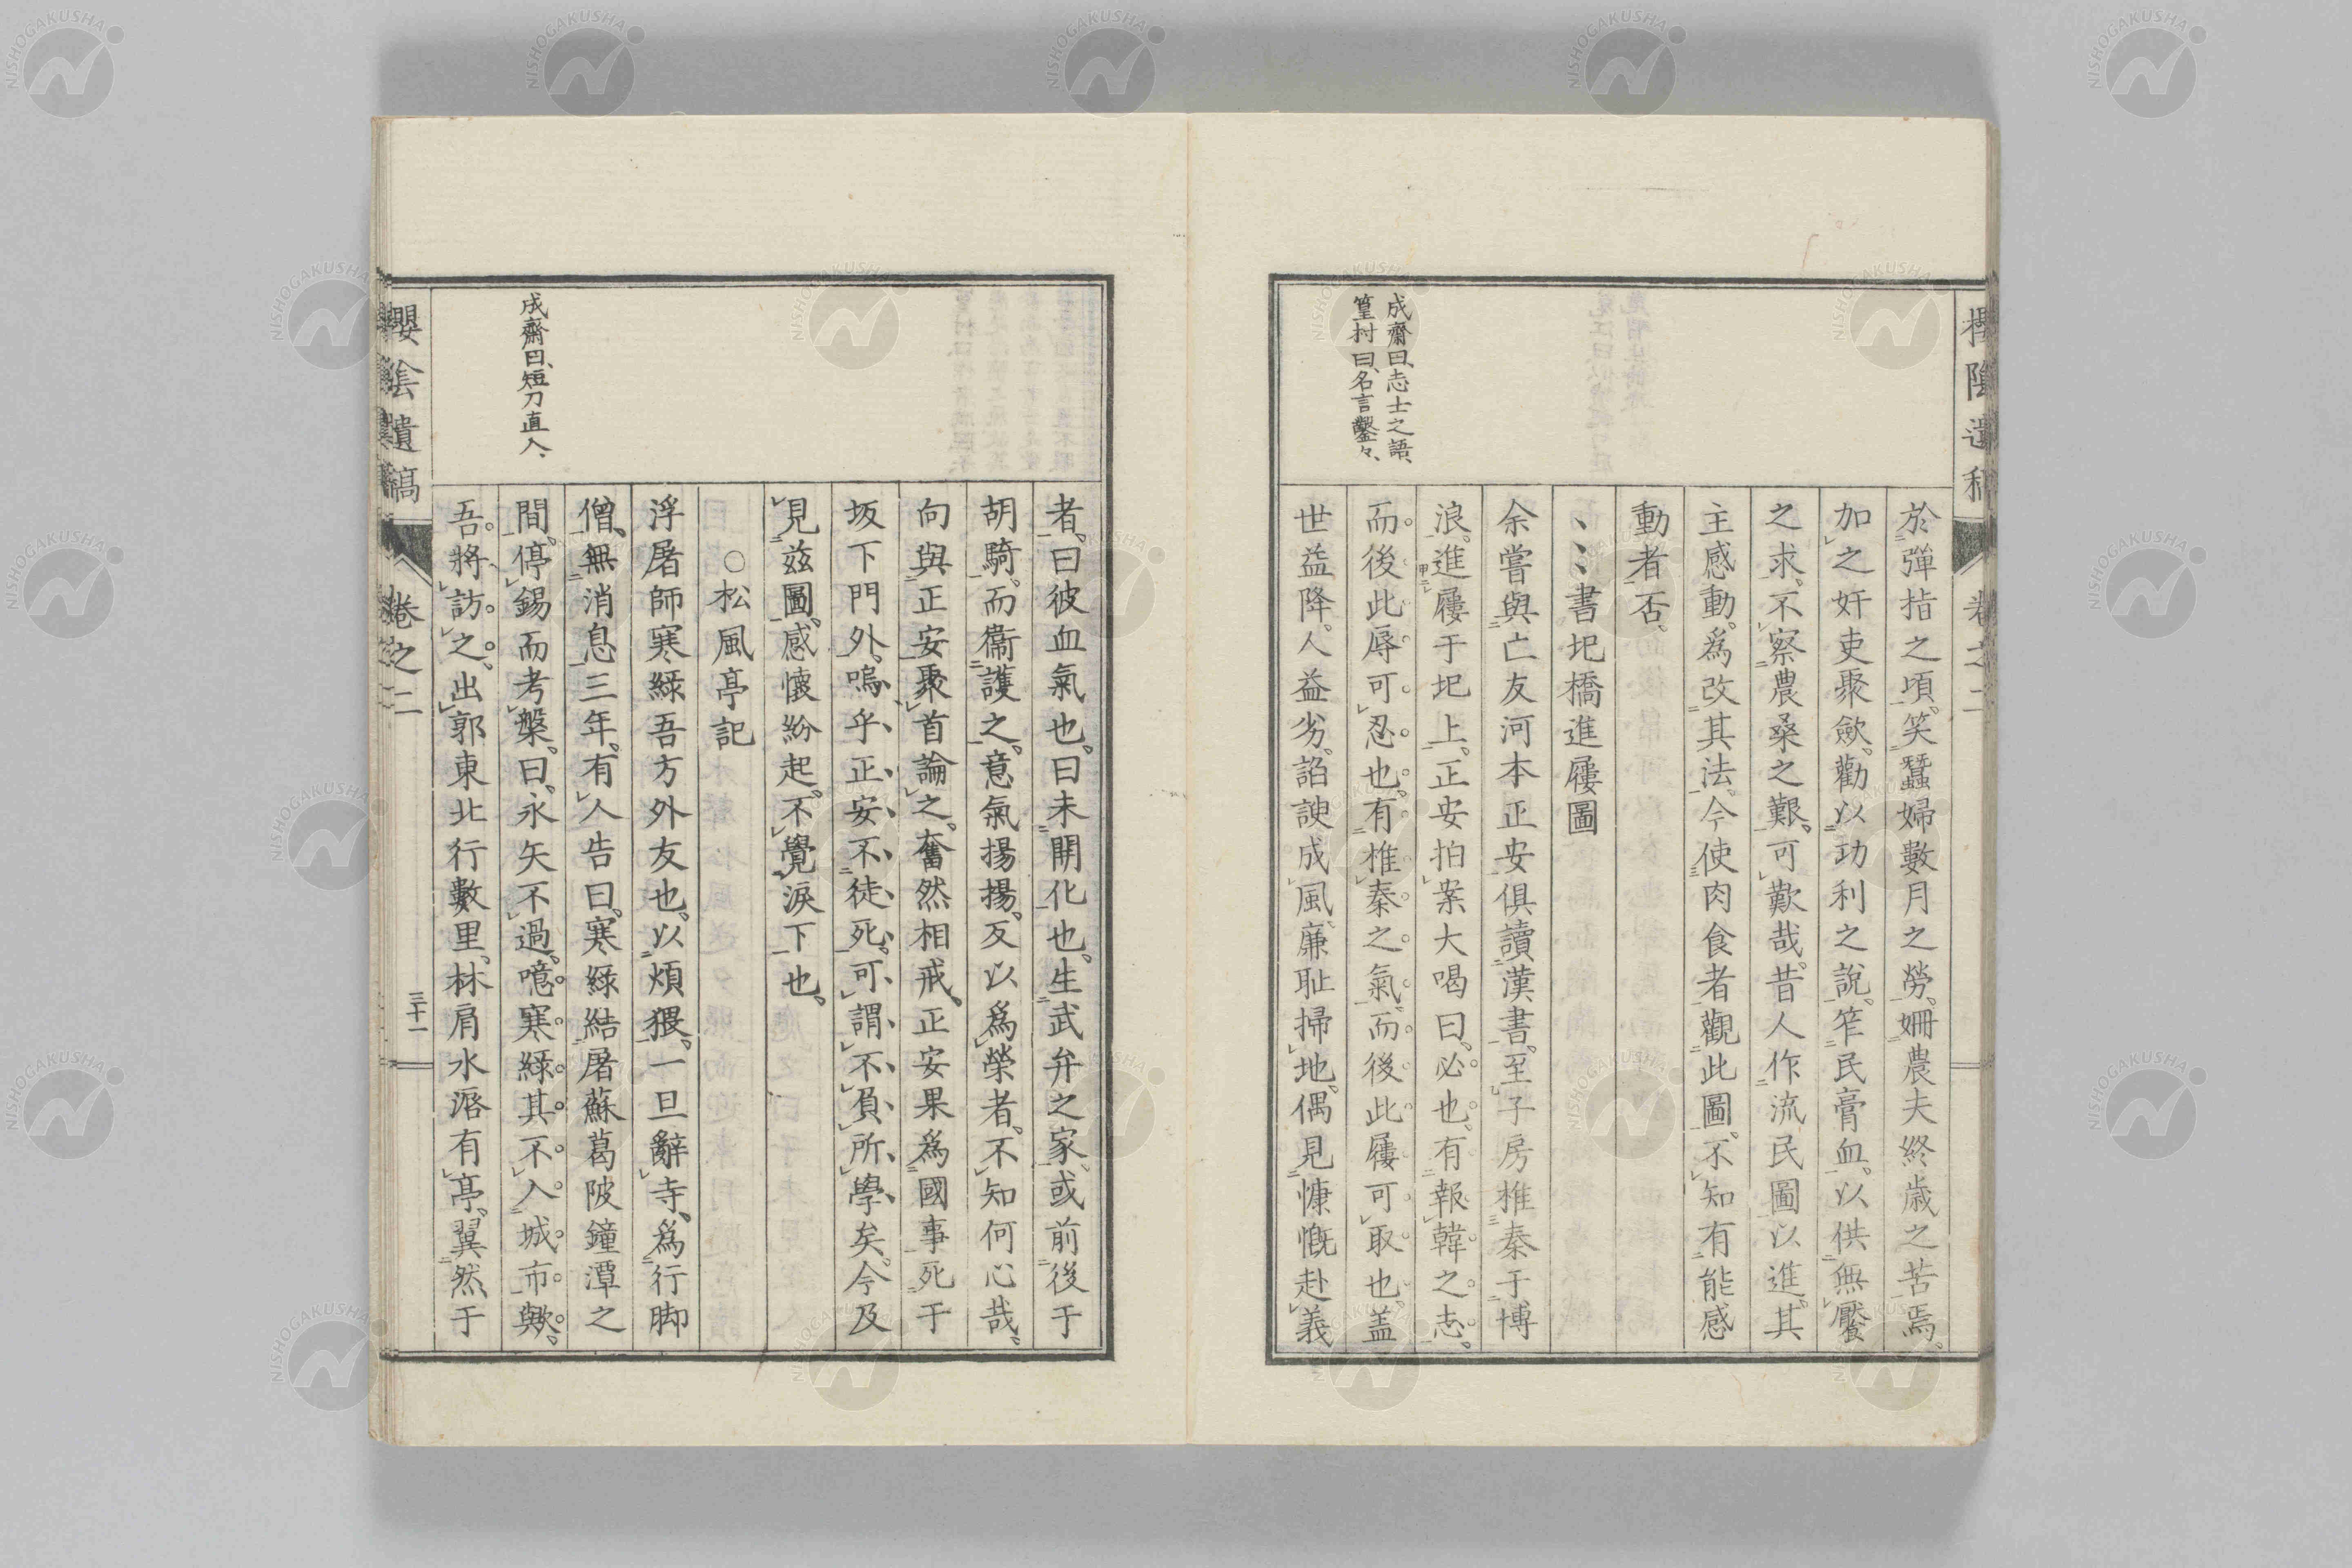 櫻陰遺稿 卷之二
成齋曰、志士之語、
篁村曰、名言鑿々、
於彈指之頃。笑蠶婦數月之勞。姍農夫終歲之苦焉。
加之奸吏聚歛。勸以功利之說。笮民膏血。以供無饜
之求。不察農桑之艱。可歎哉。昔人作流民圖以進。其
主感動。爲改其法。今使肉食者觀此圖。不知有能感
動者否。
丶丶丶書圯橋進屨圖
余嘗與亡友河本正安俱讀漢書。至子房椎秦于博
浪。進屨于圯上。正安拍案大喝曰。必也。有報韓之志。
而後此辱可忍也。有椎秦之氣。而後此屨可取也。盖
世益降。人益劣。諂諛成風。廉耻掃地。偶見慷慨赴義
成齋曰、短刀直入、
者。曰彼血氣也。曰未開化也。生武弁之家。或前後于
胡騎。而衞護之。意氣揚揚。反以爲榮者。不知何心哉。
向與正安聚首論之。奮然相戒。正安果爲國事死于
坂下門外。嗚乎正安不徒死。可謂不負所學矣。今及
見茲圖。感懷紛起。不覺淚下也。
○松風亭記
浮屠師寒綠吾方外友也。以煩猥。一旦辭寺。爲行脚
僧。無消息三年。有人告曰。寒綠結屠蘇葛陂鐘潭之
間。停錫而考槃。曰。永矢不過。噫寒綠其不入城市歟。
吾將訪之。出郭東北行數里。林肩水漘有亭。翼然于
櫻陰遺稿 卷之二 三十一